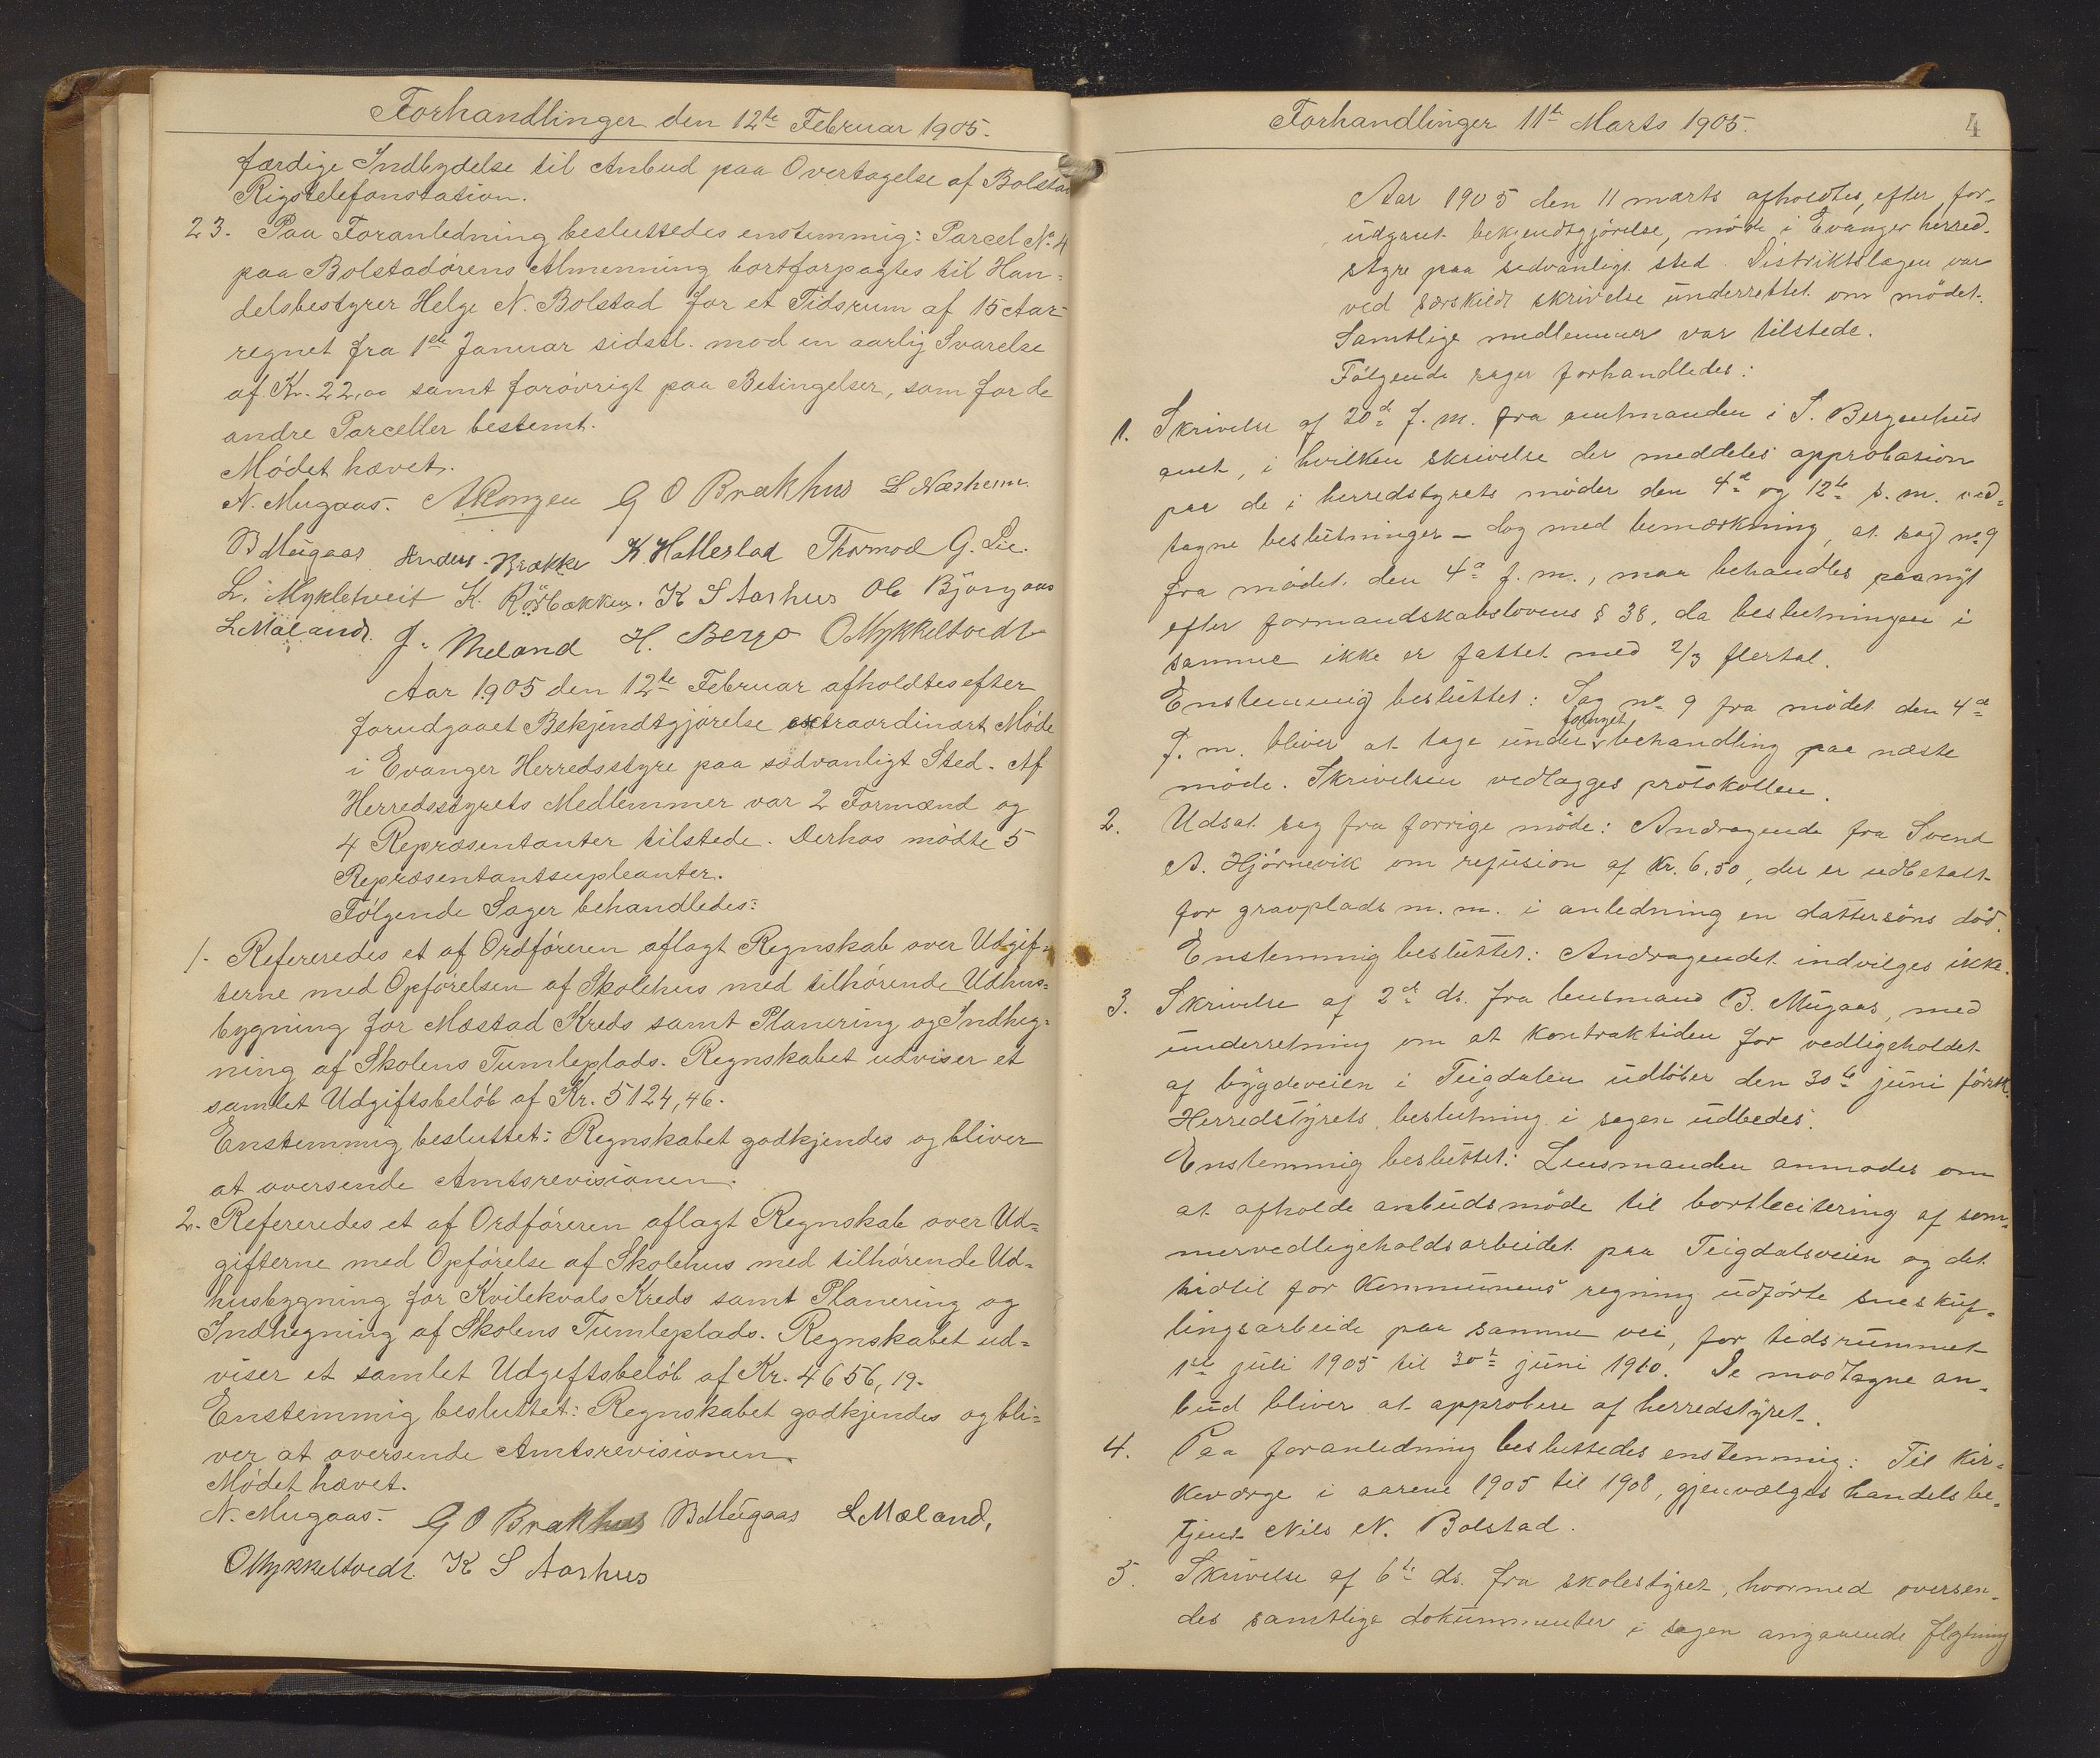 Forhandlinger den 12te Februar 1905.
færdige Indbydelse til Anbud paa Overtagelse af Bolstad
Rigstelefonstation.
23. Paa Foranledning besluttedes enstemmig: Parcel No 4
paa Bolstadørens Almenning bortforpagtes til Han-
delsbestyrer Helge N. Bolstad for et Tidsrum af 15 Aar
regnet fra 1ste Januar sidstl. mod en aarlig Svarelse
af Kr. 22,00 samt forøvrigt paa Betingelser, som for de
andre Parceller bestemt.
Mødet hævet.
N. Mugaas. AKongen G O Brækhus L Næsheim
B Mugaas Anders Brække K. Hatlestad Thormod G. Lie.
L. Mykletveit K. Rösbakken. K S Aarhus Ole Bjørgaas
L Mæland. J. Meland H. Berge O Mykkeltvedt
Aar 1905 den 12te Februar afholdtes efter
forudgaaet Bekjendtgjørelse extraordinært Møde
i Evanger Herredsstyre paa sædvanligt Sted. Af
Herredsstyrets Medlemmer var 2 Formænd og
4 Repræsentanter tilstede. Derhos mødte 5
Repræsentantsupleanter.
Følgende Sager behandledes:
1. Refereredes et af Ordføreren aflagt Regnskab over Udgif-
terne med Opførelsen af Skolehus med tilhørende Udhus-
bygning for Mæstad Kreds samt Planering og Indheg-
ning af Skolens Tumleplads. Regnskabet udviser et
samlet Udgiftsbeløb af Kr. 5124,46.
Enstemmig besluttet: Regnskabet godkjendes og bliver
at oversende Amtsrevisionen.
2. Refereredes et af Ordføreren aflagt Regnskab over Ud-
gifterne med Opførelse af Skolehus med tilhørende Ud-
husbygning for Kvilekvals Kreds samt Planering og
Indhegning af Skolens Tumleplads. Regnskabet ud-
viser et samlet Udgiftsbeløb af Kr. 4656,19.
Enstemmig besluttet: Regnskabet godkjendes og bli-
ver at oversende Amtsrevisionen.
Mødet hævet.
N. Mugaas. G O Brækhus B Mugaas L Mæland,
O Mykkeltvedt. K S Aarhus
Forhandlinger 11te Marts 1905.
4
Aar 1905 den 11 marts afholdtes, efter for-
udgaaet bekjendtgjørelse, møde i Evanger herred-
styre paa sedvanligt sted. Distriktslægen var
ved særskildt skrivelse underrettet om mødet.
Samtlige medlemmer var tilstede.
Følgende sager forhandledes:
1. Skrivelse af 20de f. m. fra amtmanden i S. Bergenhus
amt, i hvilken skrivelse der meddeles approbasion
paa de i herredstyrets møder den 4de og 12te s. m. ved-
tagne beslutninger – dog med bemærkning, at sag no 9
fra mødet den 4de f. m., maa behandles paanyt
efter formandskabslovens § 38, da beslutningen i
samme ikke er fattet med 2/3 flertal.
Enstemmig besluttet: Sag no 9 fra mødet den 4de
f. m. bliver at tage under fornyet behandling paa næste
møde. Skrivelsen vedlægges protokollen.
2. Udsat sag fra forrige møde: Andragende fra Svend
A. Hjørnevik om refusion af kr. 6,50, der er udbetalt
for gravplads m. m. i anledning en dattersøns død.
Enstemmig besluttet: Andragendet indvilges ikke.
3. Skrivelse af 2de ds. fra lensmand B. Mugaas, med
underretning om at kontraktiden for vedligeholdet
af bygdeveien i Teigdalen udløber den 30te juni førstk.
Herredstyrets beslutning i sagen udbedes.
Enstemmig besluttet: Lensmanden anmodes om
at afholde anbudsmøde til bortlicitering af som-
mervedligeholdsarbeidet paa Teigdalsveien og det
hidtil for kommunens regning udførte sneskuf-
lingsarbeide paa samme vei, for tidsrummet
1ste juli 1905 til 30te juni 1910. De modtagne an-
bud bliver at approbere af herredstyret.
4. Paa foranledning besluttedes enstemmig: Til kir-
keværge i aarene 1905 til 1908, gjenvælges handelsbe-
tjent Nils N. Bolstad.
5. Skrivelse af 6te ds. fra skolestyret, hvormed oversen-
des samtlige dokummenter i sagen angaaende flytning